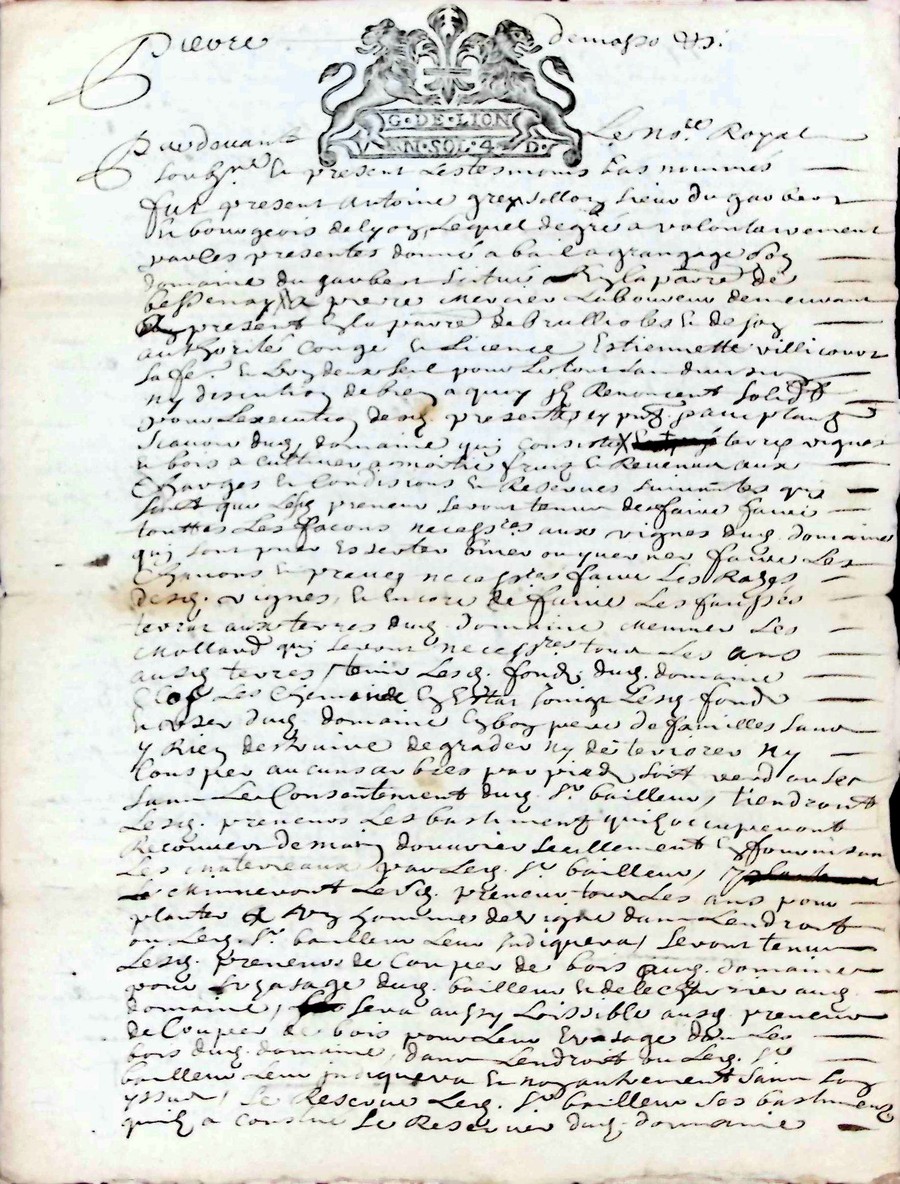 Pierre demasso &.
G·DE·LION
VN·SOL·4·D·
Pardevant Le No.re Royal
soubz.né & present Les tesmoins bas nommés
fut present Antoine greysollon sieur du gaubert
bourgeois de lyon, Lequel de gré a volontairement
par les presentes donné a bail a grangage son
domaine du gaubert situé En la parre de
bessenay a pierre mercier Laboureur demeurant
present En la parre de brullioles & de son
authorité Congé & Licence Estiennette villicourt
sa fe. & L'un deux seul pour Le tout sans division
ny discution de bien a quoy ils Renoncent solid.t
pour L'execution desd. presentes,
scavoir dud. domaine qui Consiste terres vignes
& bois a cultiver a moitié fruis & Revenus aux
Charges & Condisions & Reserves suivantes qui
sont que Lesd. preneur seront tenus de faire faire
touttes Les façons necess.res aux vignes dud. domaine
qui sont biner faire Les
necess.res faire Les Razes
desd. vignes, & Encore de faire Les fausses
terres aux terres dud. domaine Mener Les
Molland qui seront necess.res tous Les ans
ausd. terres, tenir Lesd. fonds dud. domaine
Clos Les Chemins En Estat Lesd. fonds
& user dud. domaine En bon pere de familles sans
y Rien destruire degrader ny detteriorer ny
Couper aucuns arbres par pied soit verd ou sec
sans Le Consentement dud. s.r bailleur, tiendront
Lesd. preneurs Les bastiments quils occuperont
Recouvers de main d'ouvrier seullement En fournissan
Les matereaux par Led. s.r bailleur,
Lesd. preneur tous Les ans pour
planter hommes de vigne dans L'endroit
ou Led. s.r bailleur Leur Indiquera, seront tenus
Lesd. preneurs de Couper de bois dud. domaine
pour L'uzasage dud. bailleur & de le Charrier aud.
domaine, sera aussy Loissible ausd. preneur
de Couper de bois pour Leur uzasage dans Les
bois dud. domaine, dans L'endroit ou Led. s.r
bailleur Leur Indiquera & non autrement sans
yssue, se Reserve Led. s.r bailleur Les bastiments
quil a construi Le Reservier dud. domaine